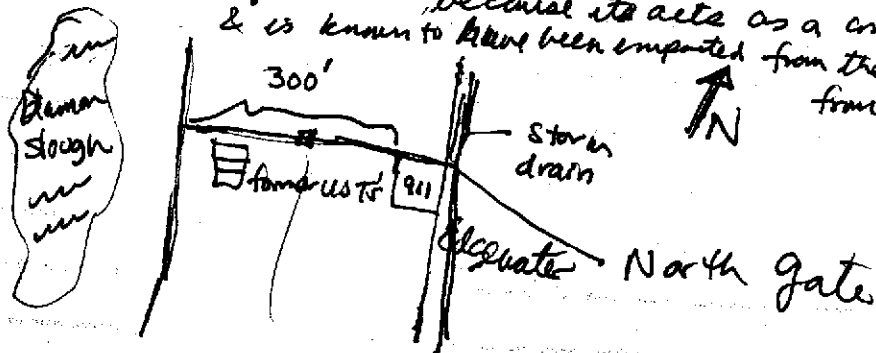 because its acts as a
& is known to have been impacted from the
from
300'
N
Damon
slough
Storm
drain
former USTs'
911
Edgewater
North gate